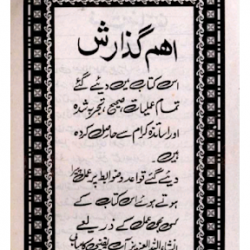 اھم گذارش
اس کتاب میں دیئے گئے
تمام عملیات صحیح، تجربہ شدہ
اور اساتذہ کرام سے حاصل کردہ
ہیں۔
دیئے گئے قواعد و ضوابط پر عمل کرتے
ہوئے اس کتاب کے
کسی بھی عمل کے ذریعے